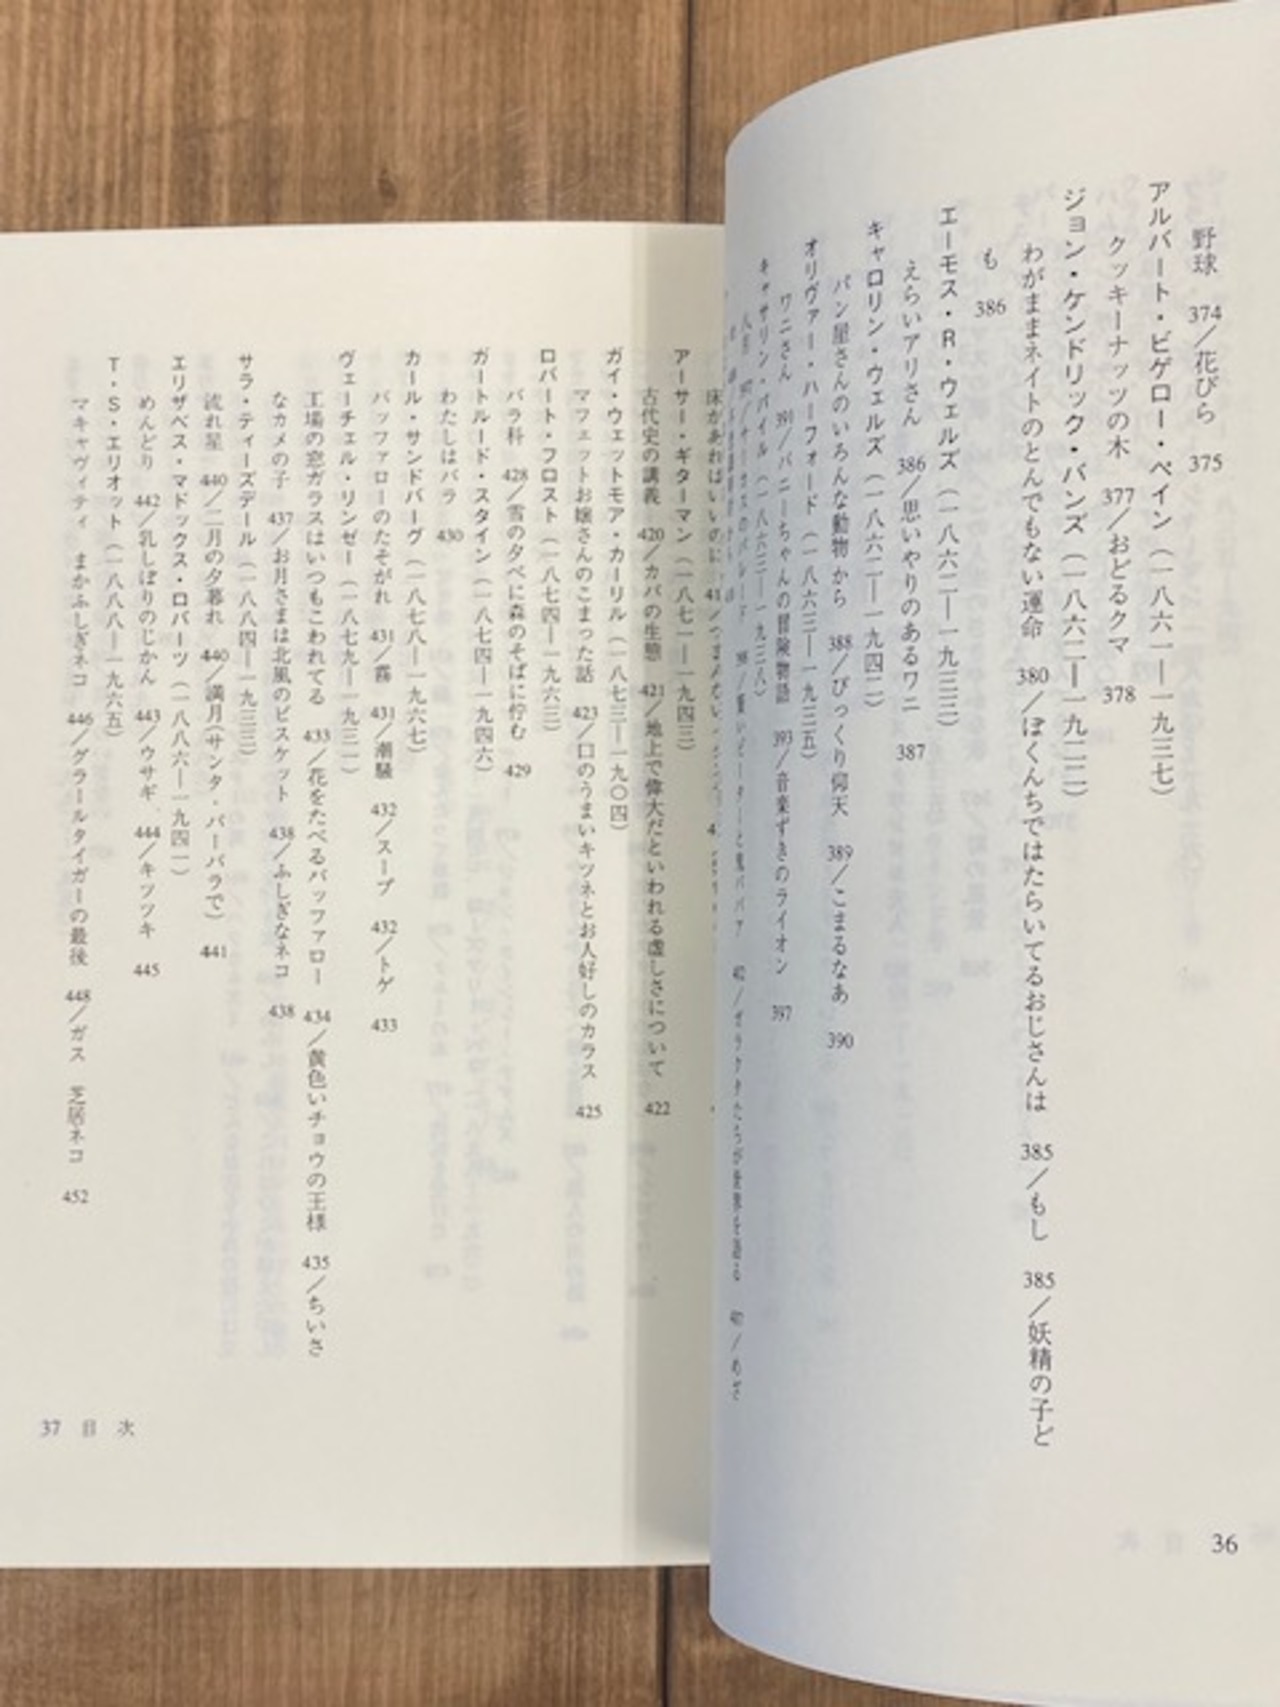 野球 374／花びら 375
アルバート・ビゲロー・ペイン（一八六一―一九三七）
クッキーナッツの木 377／おどるクマ 378
ジョン・ケンドリック・バンズ（一八六二―一九二二）
わがままネイトのとんでもない運命 380／ぼくんちではたらいてるおじさんは 385／もし 385／妖精の子ど
も 386
エーモス・R・ウェルズ（一八六二―一九三三）
えらいアリさん 386／思いやりのあるワニ 387
キャロリン・ウェルズ（一八六二―一九四二）
パン屋さんのいろんな動物 から 388／びっくり仰天 389／こまるなあ 390
オリヴァー・ハーフォード（一八六三―一九三五）
ワニさん 391／バニーちゃんの冒険物語 393／音楽ずきのライオン 397
キャサリン・パイル（一八六三―一九三八）
36
床があればいいのに
アーサー・ギターマン（一八七一―一九四三）
古代史の講義 420／カバの生態 421／地上で偉大だといわれる虚しさについて 422
ガイ・ウェットモア・カーリル（一八七三―一九〇四）
マフェットお嬢さんのこまった話 423／口のうまいキツネとお人好しのカラス 425
ロバート・フロスト（一八七四―一九六三）
バラ科 428／雪の夕べに森のそばに佇む 429
ガートルード・スタイン（一八七四―一九四六）
わたしはバラ 430
カール・サンドバーグ（一八七八―一九六七）
バッファローのたそがれ 431／霧 431／潮騒 432／スープ 432／トゲ 433
ヴェーチェル・リンゼー（一八七九―一九三一）
工場の窓ガラスはいつもこわれてる 433／花をたべるバッファロー 434／黄色いチョウの王様 435／ちいさ
なカメの子 437／お月さまは北風のビスケット 438／ふしぎなネコ 438
サラ・ティーズデール（一八八四―一九三三）
流れ星 440／二月の夕暮れ 440／満月(サンタ・バーバラで) 441
エリザベス・マドックス・ロバーツ（一八八六―一九四一）
めんどり 442／乳しぼりのじかん 443／ウサギ 444／キツツキ 445
T・S・エリオット（一八八八―一九六五）
マキャヴィティ まかふしぎネコ 446／グラールタイガーの最後 448／ガス 芝居ネコ 452
37 目次